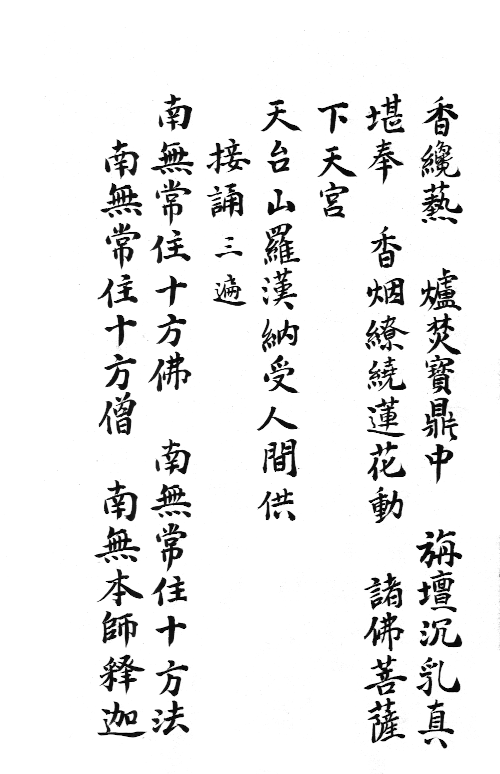 香纔爇　爐焚寶鼎中　旃壇沉乳真
堪奉　香烟繚繞蓮花動　諸佛菩薩
下天宮
天台山羅漢納受人間供
接誦三遍
南無常住十方佛　南無常住十方法
南無常住十方僧　南無本師释迦